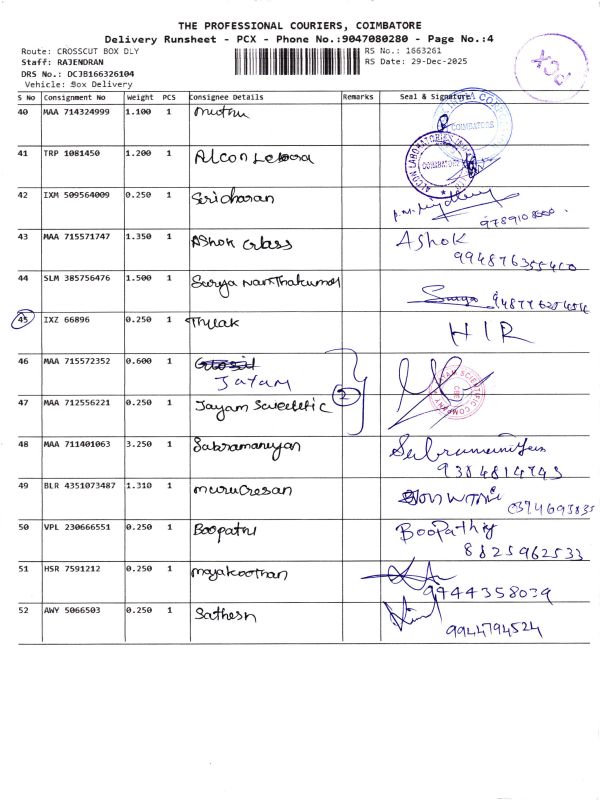 THE PROFESSIONAL COURIERS, COIMBATORE
Delivery Runsheet - PCX - Phone No.:9047080280 - Page No.:4
Route: CROSSCUT BOX DLY RS No.: 1663261
Staff: RAJENDRAN RS Date: 29-Dec-2025
DRS No.: DCJB166326104
Vehicle: Box Delivery
PCX
S No Consignment No Weight PCS Consignee Details Remarks Seal & Signature
40 MAA 714324999 1.100 1 muthu
COIMBATORE
41 TRP 1081450 1.200 1 Alcon
ALCON LABORATORIES COIMBATORE
42 IXM 509564009 0.250 1 Sridharan
43 MAA 715571747 1.350 1 Ashok Glass Ashok
44 SLM 385756476 1.500 1 Surya Nanthakumar Surya
45 IXZ 66896 0.250 1 Thilak HIR
46 MAA 715572352 0.600 1 Jayam
2
47 MAA 712556221 0.250 1 Jayam
48 MAA 711401063 3.250 1 Subramaniyan Subramaniyan
9384814743
49 BLR 4351073487 1.310 1 murugesan
50 VPL 230666551 0.250 1 Boopathi Boopathy
8825962533
51 HSR 7591212 0.250 1 mayakoothan
9944358039
52 AWY 5066503 0.250 1 Sathesh
9944794524